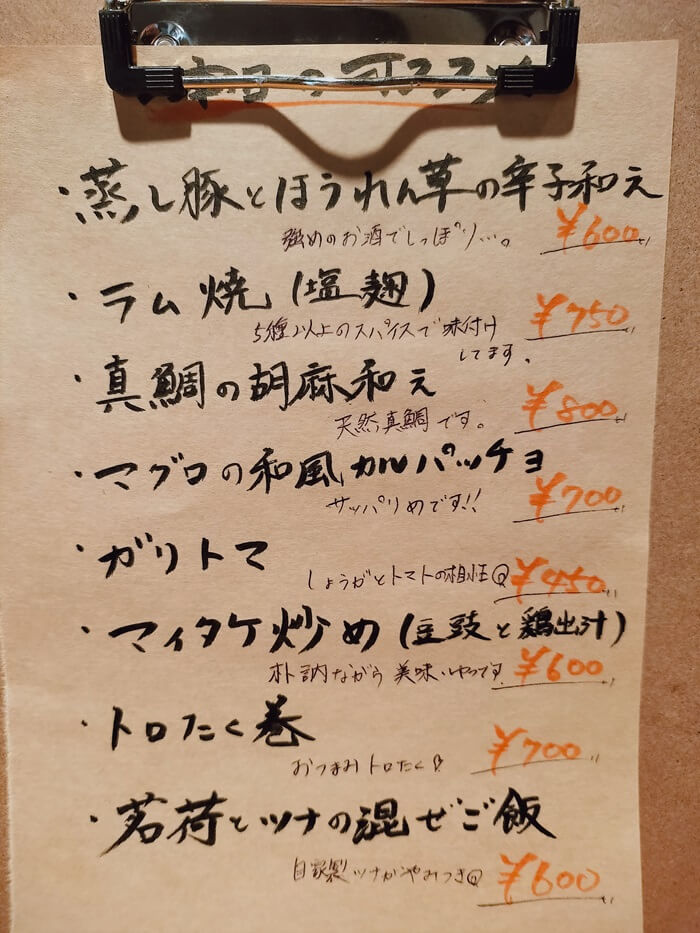 本日のオススメ
・蒸し豚とほうれん草の辛子和え
強めのお酒でしっぽり…。 ¥600
・ラム焼(塩麹)
5種以上のスパイスで味付け
してます。 ¥750
・真鯛の胡麻和え
天然真鯛です。 ¥800
・マグロの和風カルパッチョ
サッパリめです!! ¥700
・ガリトマ
しょうがとトマトの相性 ¥450
・マイタケ炒め(豆豉と鶏出汁)
朴訥ながら美味いやつです ¥600
・トロたく巻
おつまみトロたく ¥700
・茗荷とツナの混ぜご飯
自家製ツナがやみつき ¥600